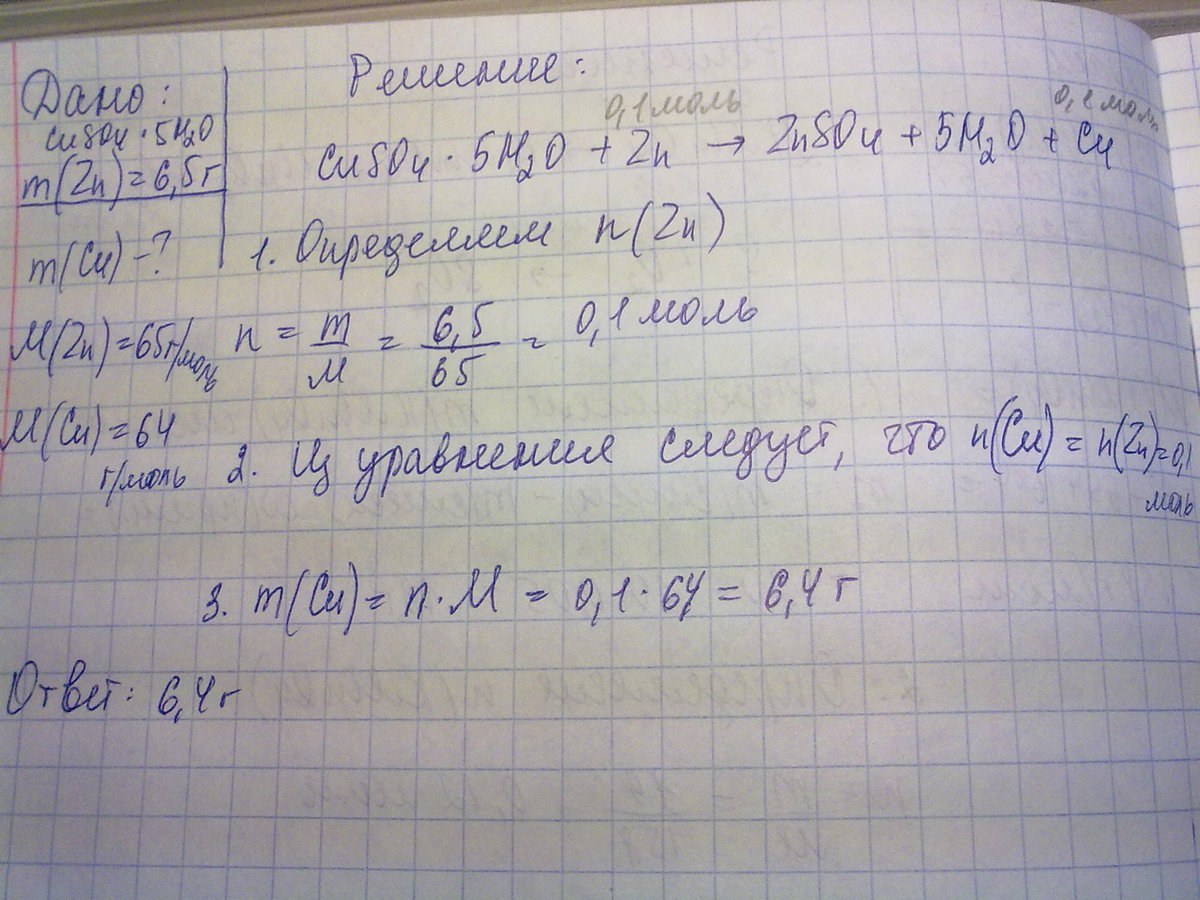 Дано:
CuSO4 · 5H2O
m(Zn) = 6,5 г
m(Cu) - ?
M(Zn) = 65 г/моль
M(Cu) = 64 г/моль
Решение:
0,1 моль 0,1 моль
CuSO4 · 5H2O + Zn → ZnSO4 + 5H2O + Cu
1. Определяем n(Zn)
n = m/M = 6,5/65 = 0,1 моль
2. Из уравнения следует, что n(Cu) = n(Zn) = 0,1 моль
3. m(Cu) = n · M = 0,1 · 64 = 6,4 г
Ответ: 6,4 г